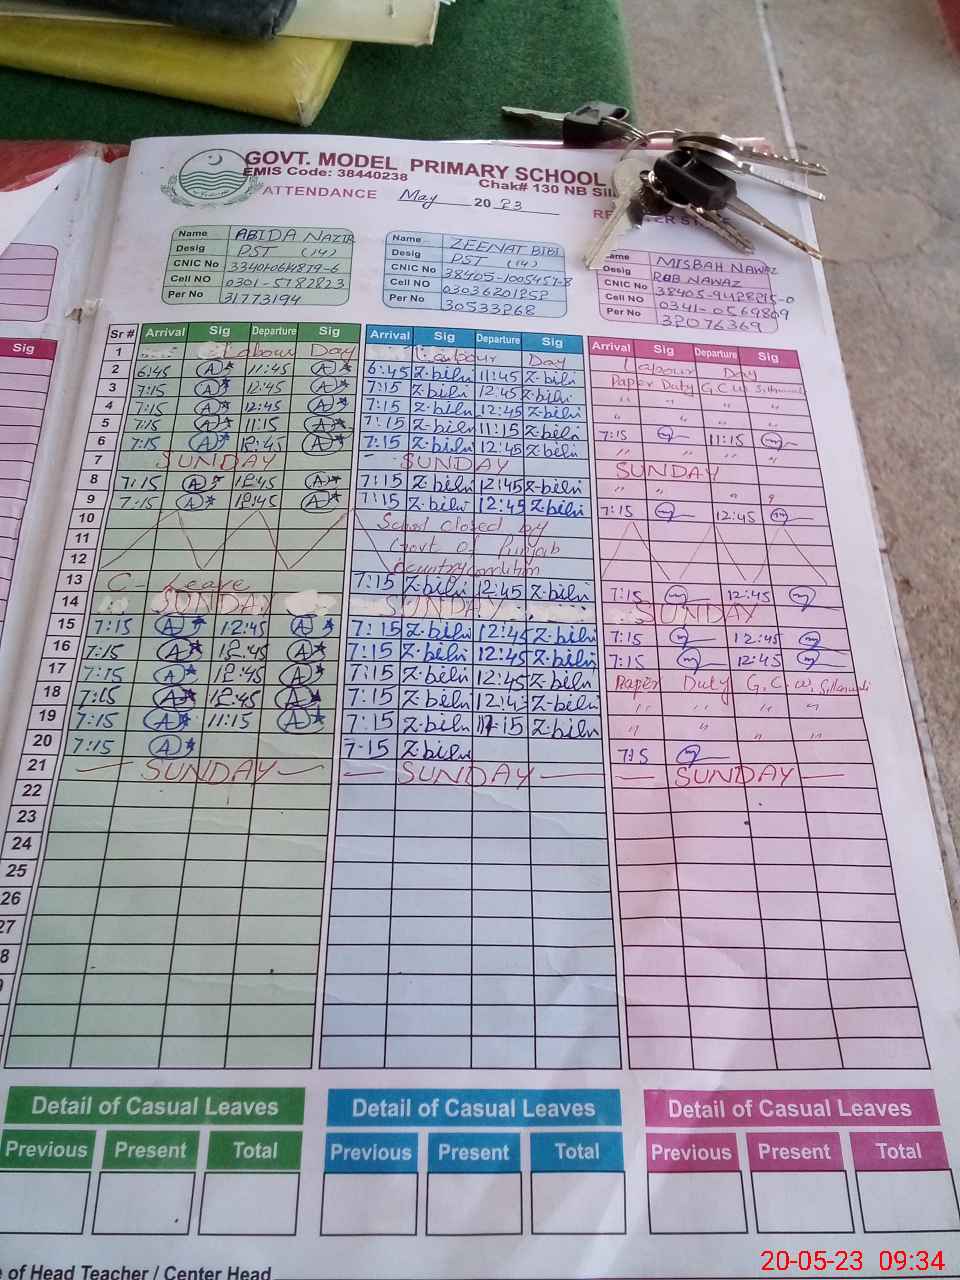 GOVT. MODEL PRIMARY SCHOOL
EMIS Code: 38440238 Chak# 130 NB Sill
ATTENDANCE May 20 23
Name ABIDA NAZIR
Desig PST (14)
CNIC No
Cell NO 0301-5782823
Per No 31773194
Name ZEENAT BIBI
Desig PST (14)
CNIC No 38405-1005457-8
Cell NO 03036201252
Per No 30533268
ame MISBAH NAWAZ
Desig RAB NAWAZ
CNIC No
Cell NO 0341-0569809
Per No 32076369
Sig
Sr # Arrival Sig Departure Sig Arrival Sig Departure Sig Arrival Sig Departure Sig
1 Labour Day Labour Day Labour Day
2 6:45 A 11:45 A 6:45 Z.bibi 11:45 Z.bibi Paper Duty G.C.W.
3 7:15 A 12:45 A 7:15 Z.bibi 12:45 Z.bibi " " " "
4 7:15 A 12:45 A 7:15 Z.bibi 12:45 Z.bibi " " " "
5 7:15 A 11:15 A 7:15 Z.bibi 11:15 Z.bibi 7:15 11:15
6 7:15 A 12:45 A 7:15 Z.bibi 12:45 Z.bibi " " " "
7 SUNDAY SUNDAY SUNDAY
8 7:15 A 12:45 A 7:15 Z.bibi 12:45 Z.bibi " " "
9 7:15 A 12:45 A 7:15 Z.bibi 12:45 Z.bibi 7:15 12:45
10 School closed by
11 Govt of Punjab
12 country condition
13 C-Leave 7:15 Z.bibi 12:45 Z.bibi 7:15 12:45
14 SUNDAY SUNDAY SUNDAY
15 7:15 A 12:45 A 7:15 Z.bibi 12:45 Z.bibi 7:15 12:45
16 7:15 A 12:45 A 7:15 Z.bibi 12:45 Z.bibi 7:15 12:45
17 7:15 A 12:45 A 7:15 Z.bibi 12:45 Z.bibi Paper Duty G.C.W.
18 7:15 A 12:45 A 7:15 Z.bibi 12:45 Z.bibi " " " "
19 7:15 A 11:15 A 7:15 Z.bibi 11:15 Z.bibi " " " "
20 7:15 A 7:15 Z.bibi 7:15
21 — SUNDAY — — SUNDAY — — SUNDAY —
22
23
24
25
26
27
8
Detail of Casual Leaves Detail of Casual Leaves Detail of Casual Leaves
Previous Present Total Previous Present Total Previous Present Total
e of Head Teacher / Center Head
20-05-23 09:34